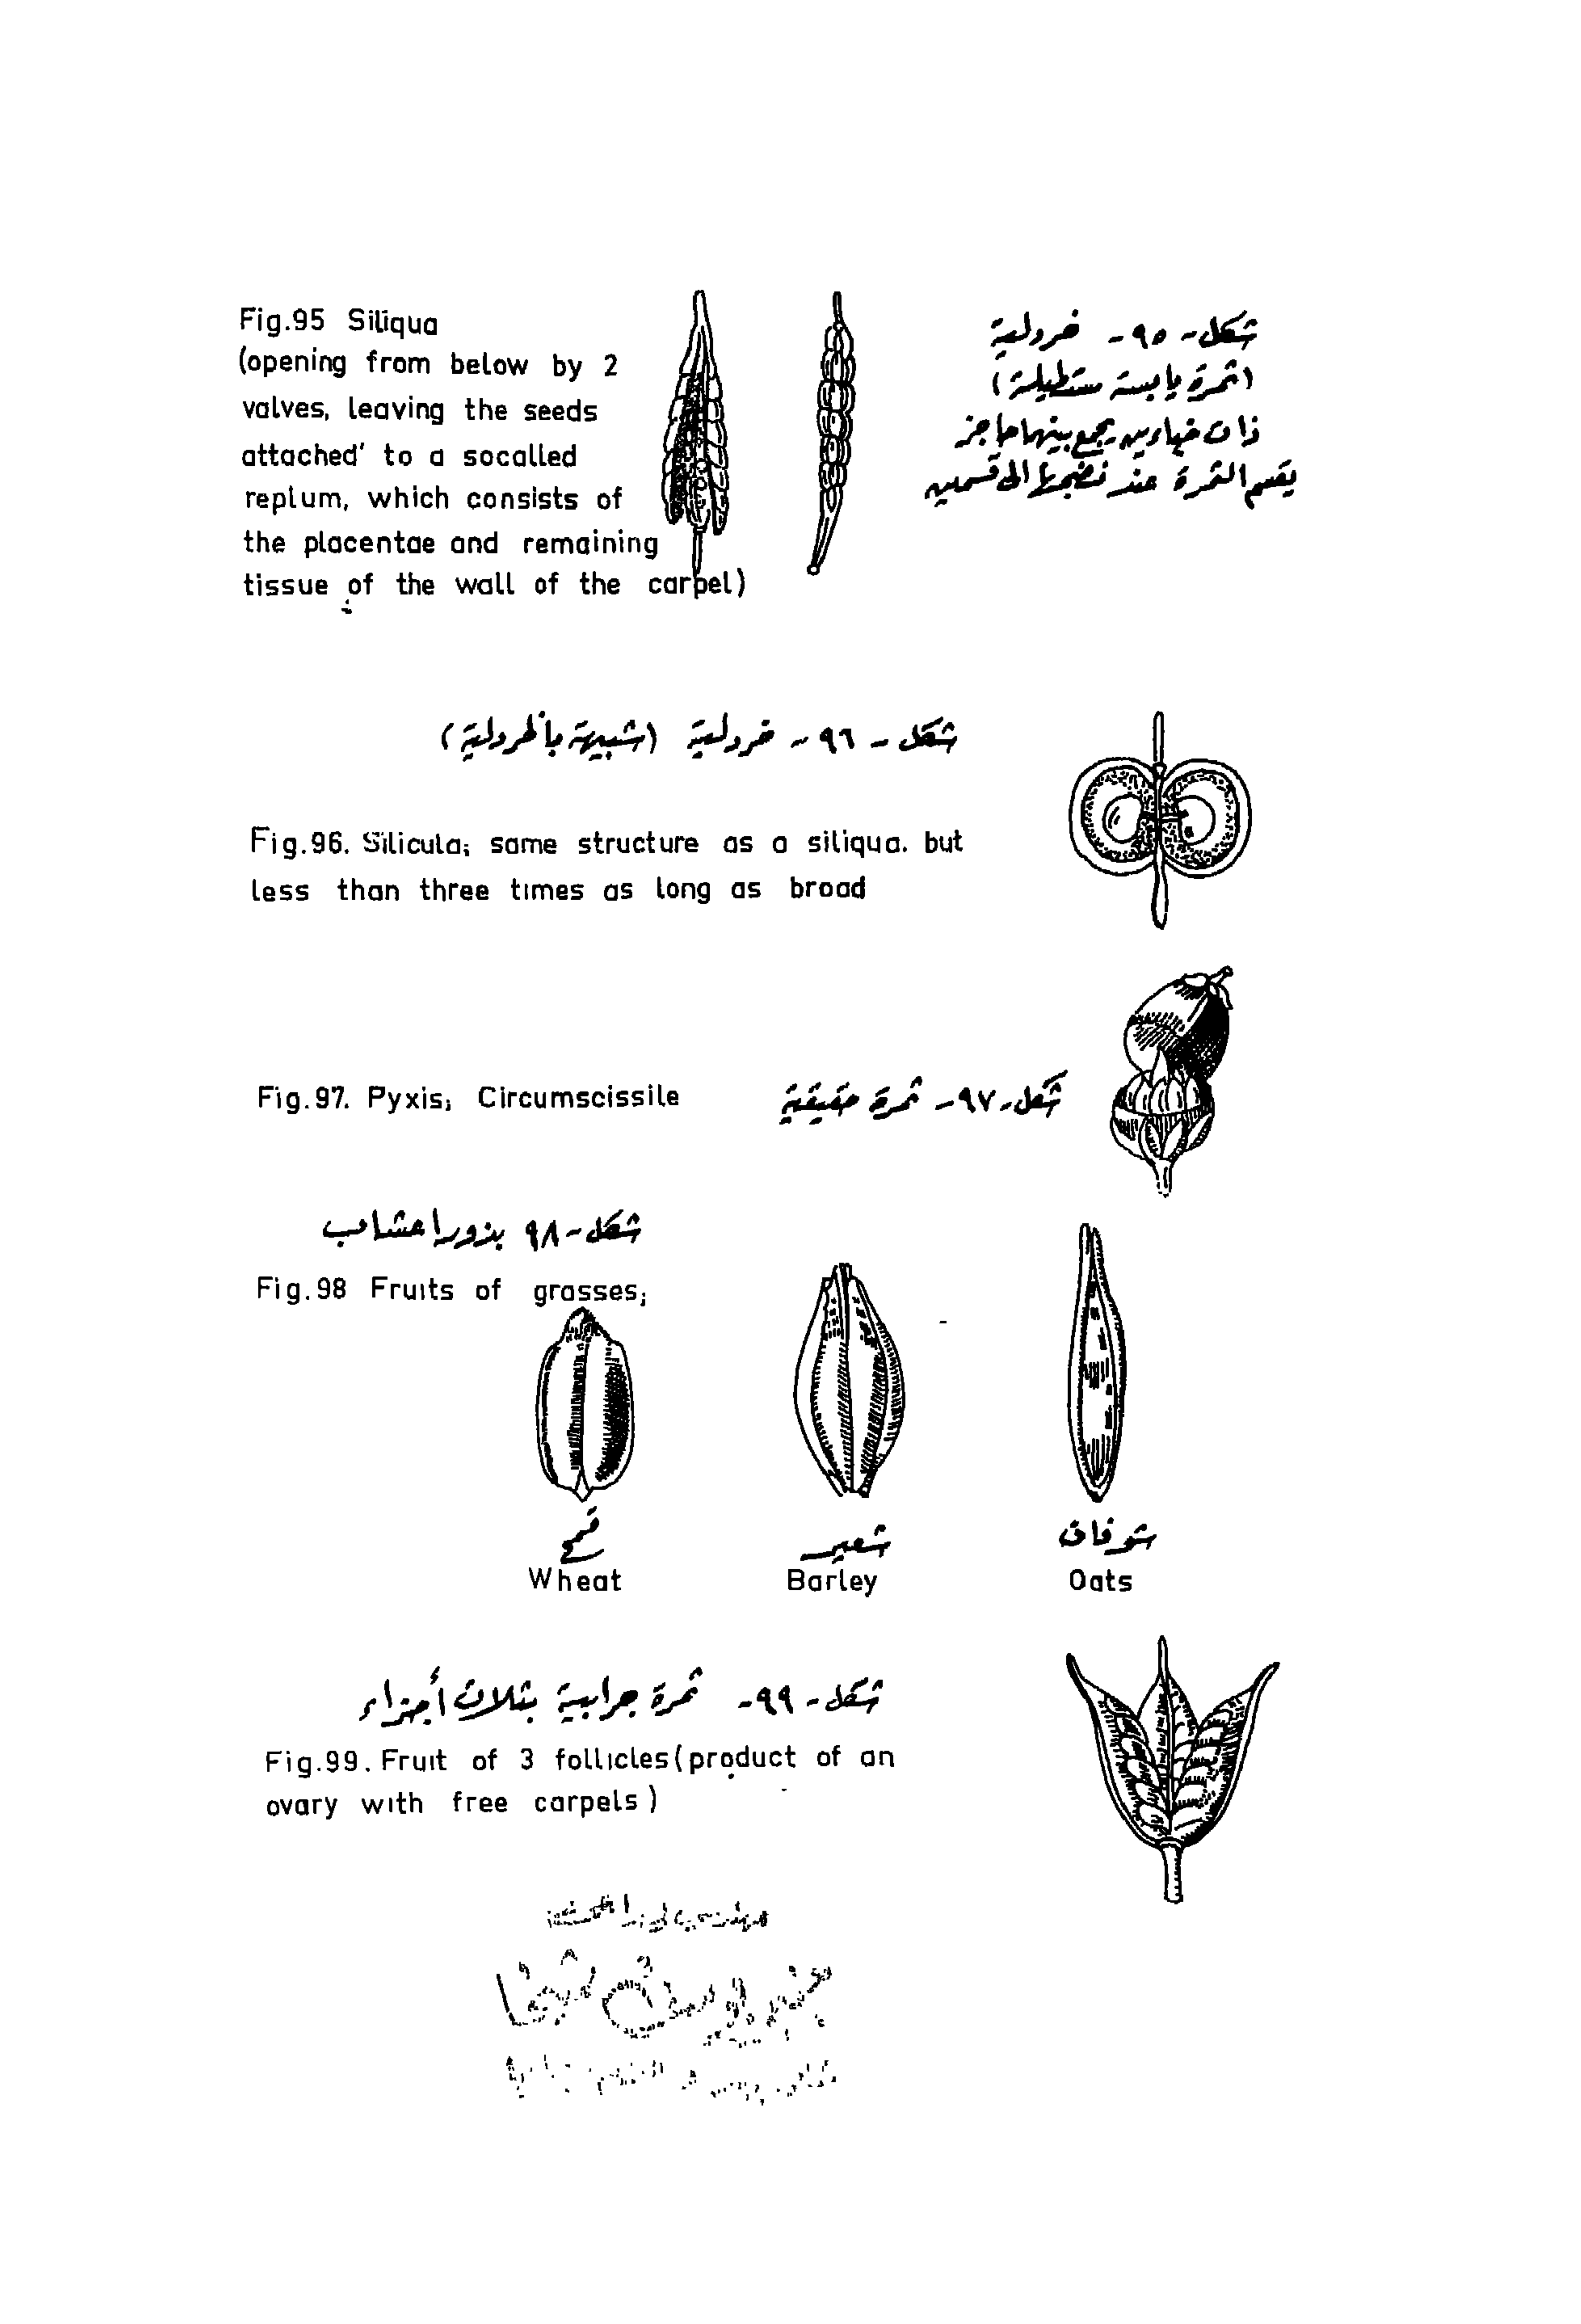 Fig.95 Siliqua
(opening from below by 2
valves, leaving the seeds
attached' to a socalled
replum, which consists of
the placentae and remaining
tissue of the wall of the carpel)
شكل - ٩٥ - خردلية
(ثمرة يابسة مستطيلة)
ذات خباءين يجمع بينهما حاجز
يقسم الثمرة عند نضجها الى قسمين
شكل - ٩٦ - خردلية (شبيهة بالخردلية)
Fig.96. Silicula; same structure as a siliqua. but
less than three times as long as broad
Fig.97. Pyxis; Circumscissile
شكل - ٩٧ - ثمرة حقيقية
شكل - ٩٨ بذور اعشاب
Fig.98 Fruits of grasses;
قمح
شعير
شوفان
Wheat
Barley
Oats
شكل - ٩٩ - ثمرة جرابية بثلاث أجزاء
Fig.99. Fruit of 3 follicles(product of an
ovary with free carpels)